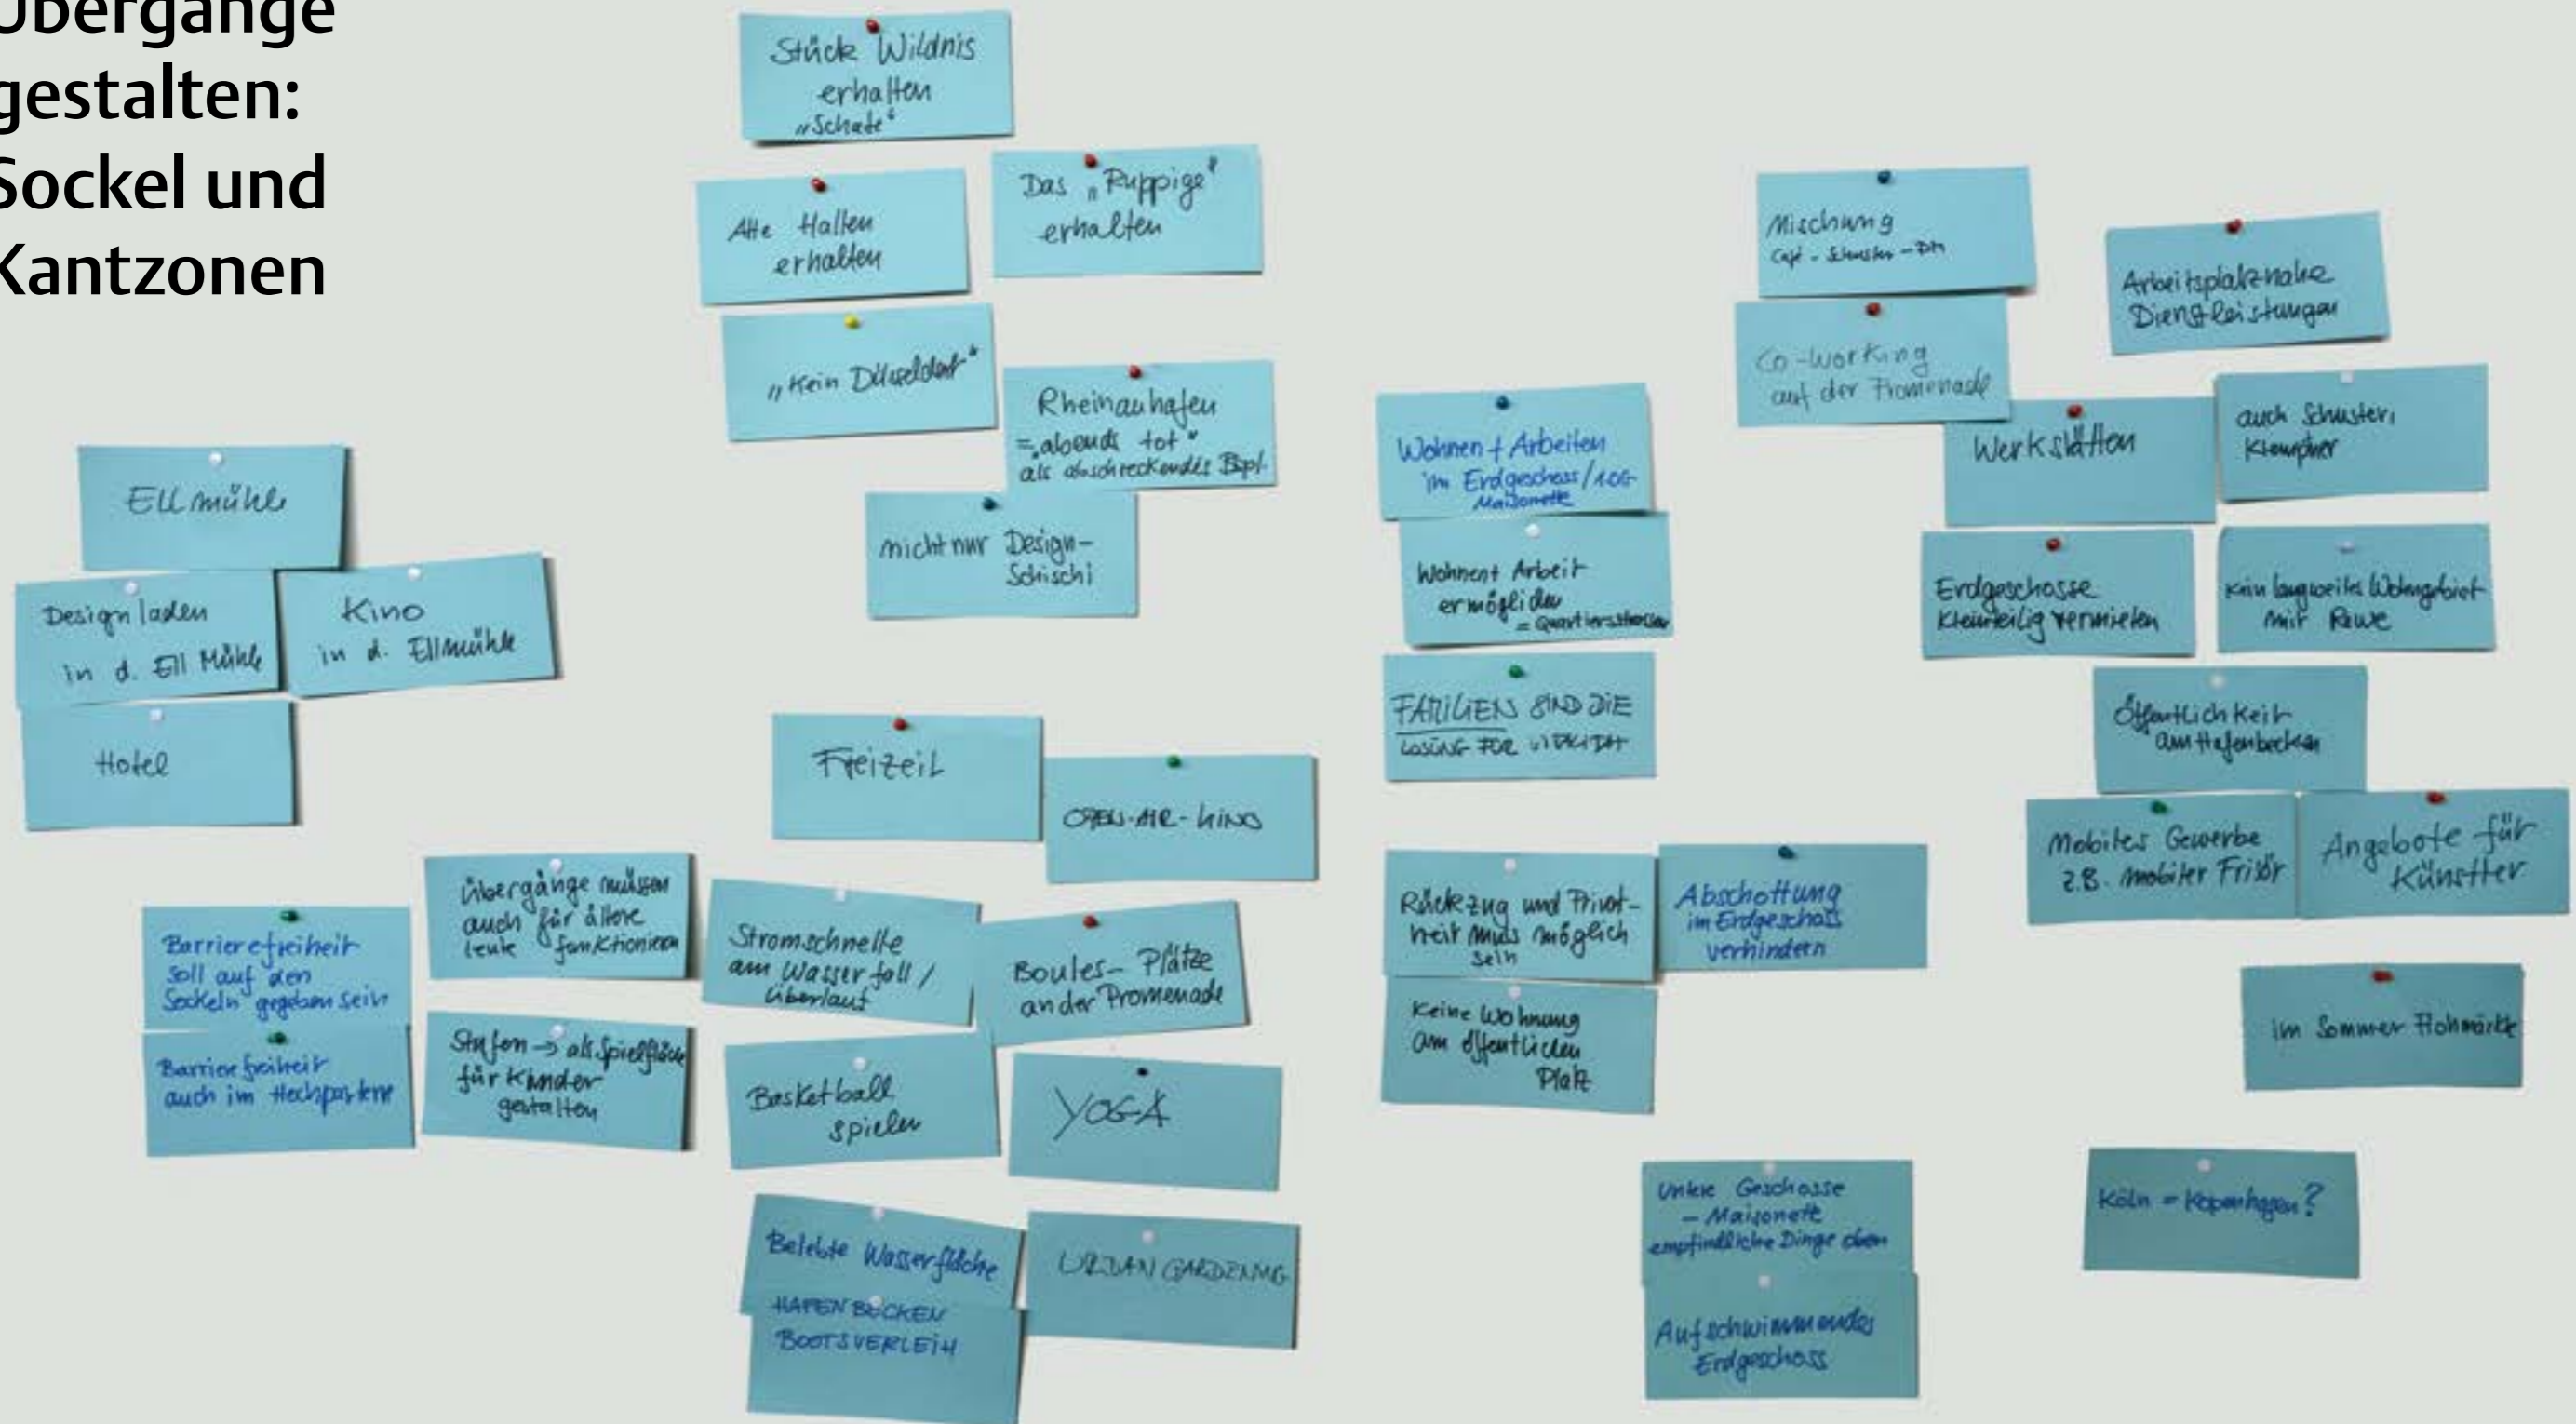 Übergänge
gestalten:
Sockel und
Kantzonen
Stück Wildnis
erhalten
Alte Hallen
erhalten
Das „Ruppige“
erhalten
„Kein Düsseldorf“
Rheinauhafen
= „abends tot“
als abschreckendes Bspl.
nicht nur Design-
Schischi
Ellmühle
Designladen
in d. Ell Mühle
Kino
in d. Ellmühle
Hotel
Freizeit
OPEN-AIR-KINO
Barrierefreiheit
soll auf den
Sockeln gegeben sein
Barrierefreiheit
auch im Hochparterre
Übergänge müssen
auch für ältere
Leute funktionieren
Stufen → als Spielfläche
für Kinder
gestalten
Stromschnelle
am Wasserfall /
Überlauf
Boules-Plätze
an der Promenade
Basketball
spielen
YOGA
Belebte Wasserfläche
HAFENBECKEN
BOOTSVERLEIH
URBAN GARDENING
Wohnen + Arbeiten
im Erdgeschoss/1.OG
Maisonette
Wohnen + Arbeit
ermöglichen
FAMILIEN SIND DIE
LÖSUNG FÜR VITALITÄT
Rückzug und Privat-
heit muss möglich
sein
Abschottung
im Erdgeschoss
verhindern
Keine Wohnung
am öffentlichen
Platz
Untere Geschosse
– Maisonett
empfindliche Dinge oben
Aufschwimmendes
Erdgeschoss
Mischung
Café - Schuster - DM
Co-working
auf der Promenade
Arbeitsplatznahe
Dienstleistungen
Werkstätten
auch Schuster,
Klempner
Erdgeschosse
kleinteilig vermieten
Kein langweiles Wohngebiet
mit Rewe
Öffentlichkeit
am Hafenbecken
Mobiles Gewerbe
z.B. mobiler Frisör
Angebote für
Künstler
im Sommer Flohmärkte
Köln = Kopenhagen?